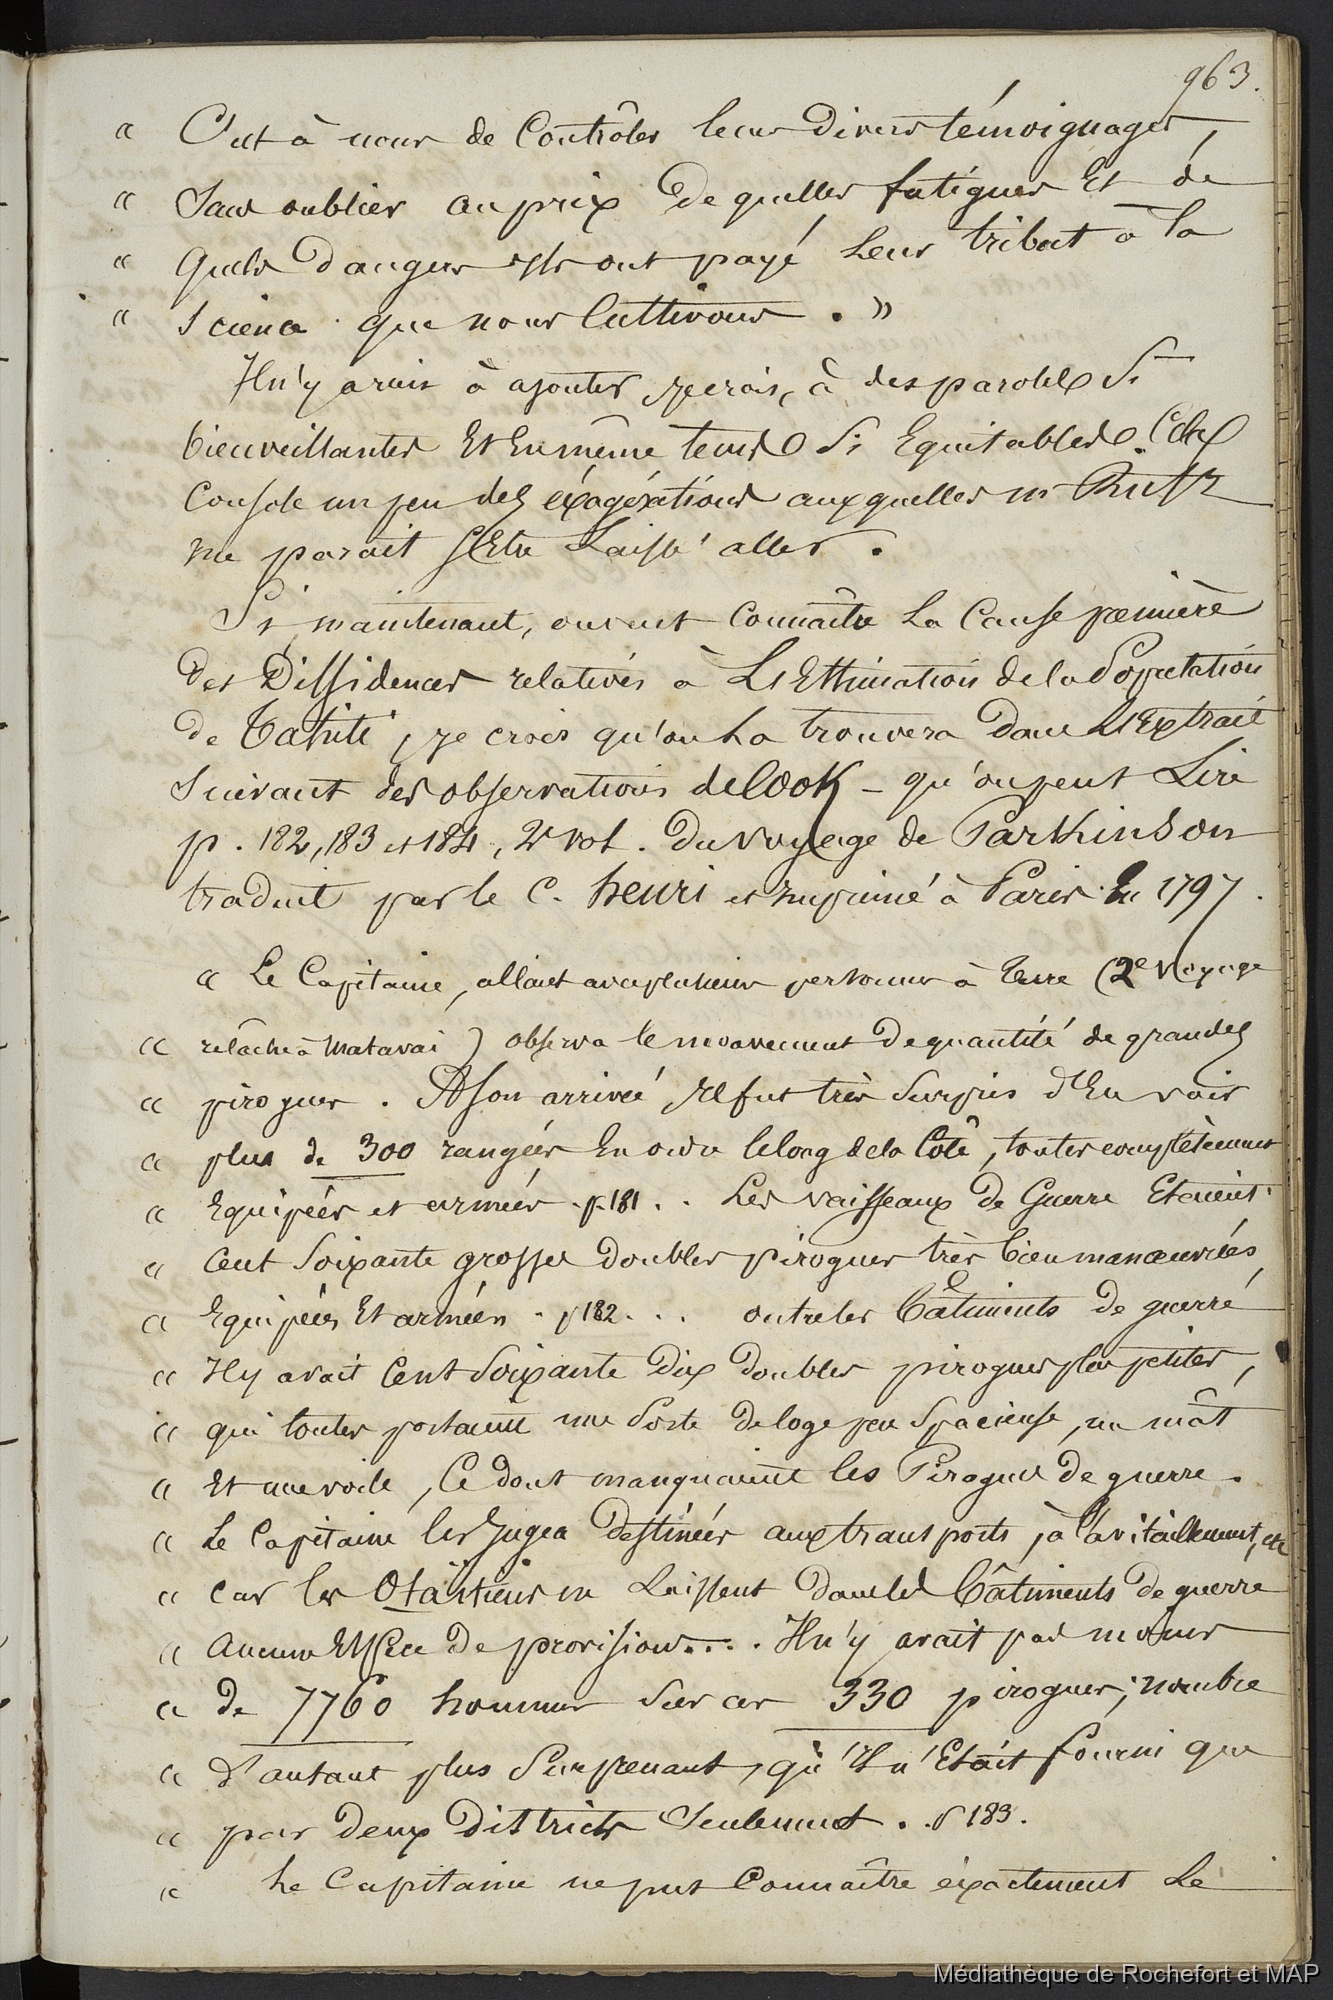 963.
« C'est à nous de Contrôler leurs divers témoignages,
« Sans oublier au prix de quelles fatigues Et de
« Quels dangers ils ont payé Leur tribut à la
« Science que nous Cultivons . »
Il n'y a rien à ajouter, je crois, à des paroles Si
bienveillantes Et En même tems Si Equitables. Cela
Console un peu des éxagérations auxquelles mr Rufz
me parait S'Etre Laissé aller .
Si, maintenant, on veut Connaître La Cause première
des Dissidences relatives à L'Estimation de la Population
de Tahiti, je crois qu'on La trouvera dans L'Extrait
Suivant des observations de COOK – qu'on peut Lire
p . 182, 183 et 184, 2e vol . du voyage de Parkinson
traduit par le C. henri et imprimé à Paris En 1797 .
« Le Capitaine, allant avec plusieurs personnes à terre (2e voyage
« relâche à Matavai) observa le mouvement de quantité de grandes
« pirogues . A son arrivée, il fut très Surpris d'En voir
« plus de 300 rangées En ordre le long de la Côte, toutes complètement
« Equipées et armées . p. 181 . . Les vaisseaux de Guerre Etaient
« Cent Soixante grosses doubles pirogues très bien manœuvrées,
« Equipées Et armées . p 182 . . . outre les Bâtiments de guerre
« Il y avait Cent Soixante dix doubles pirogues plus petites,
« qui toutes portaient une Sorte de loge peu Spacieuse, un mât
« Et une voile, Ce dont manquaient les Pirogues de guerre .
« Le Capitaine les Jugea destinées aux transports, à l'avitaillement, etc
« Car les Otaïtiens ne Laissent dans les Bâtiments de guerre
« Aucune Espèce de provisions . . . . Il n'y avait pas moins
« de 7760 hommes Sur ces 330 pirogues ; nombre
« d'autant plus Surprenant, qu'il n'Etait fourni que
« par deux Districts Seulement . . p 183 .
« Le Capitaine ne put Connaître éxactement Le
Médiathèque de Rochefort et MAP